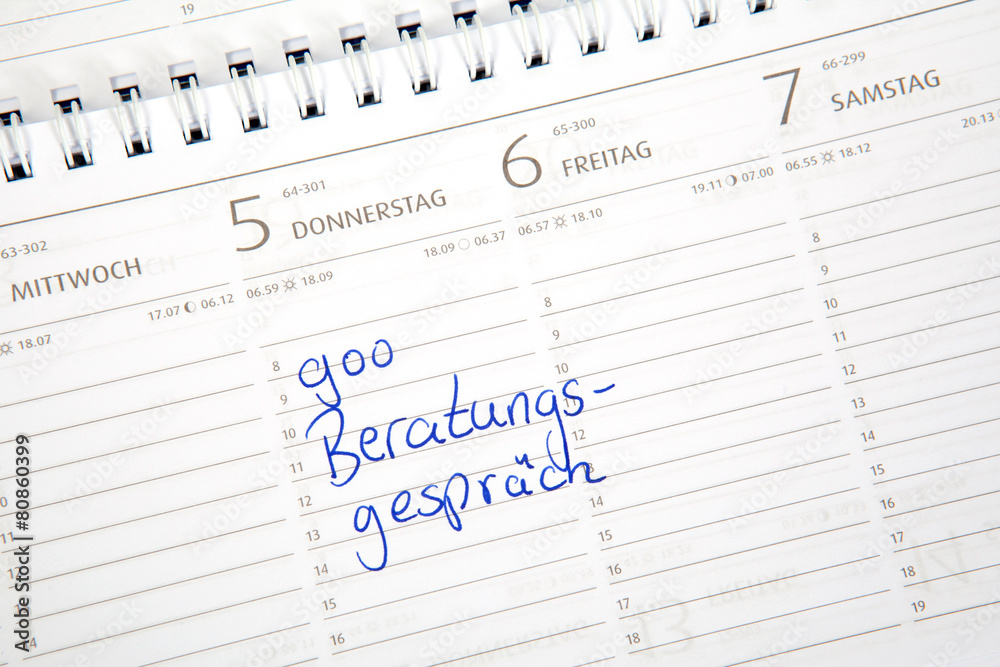 19
63-302
MITTWOCH
18.07
17.07 06.12
5 64-301
DONNERSTAG
06.59 18.09
18.09 06.37
6 65-300
FREITAG
06.57 18.10
19.11 07.00
7 66-299
SAMSTAG
06.55 18.12
20.13
8
9
10
11
12
13
14
15
16
goo
Beratungs-
gespräch
8
9
10
11
12
13
14
15
16
17
18
8
9
10
11
12
13
14
15
16
17
18
19
Adobe Stock | #80860399